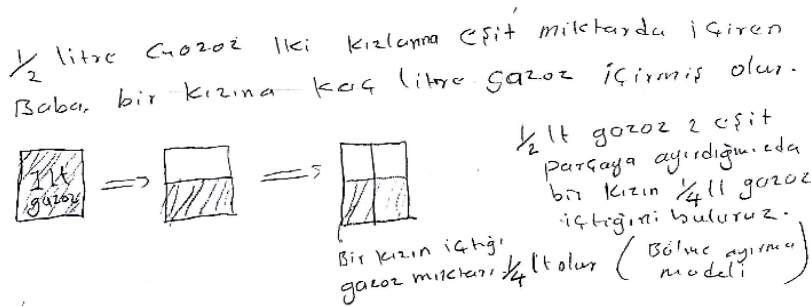 1/2 litre Gazoz iki kızlarına eşit miktarda içiren
Baba, bir kızına kaç litre gazoz içirmiş olur.
1 lt
gazoz
1/2 lt gazoz 2 eşit
parçaya ayırdığımızda
bir kızın 1/4 lt gazoz
içtiğini buluruz.
Bir kızın içtiği
gazoz miktarı 1/4 lt olur (Bölme ayırma
modeli)